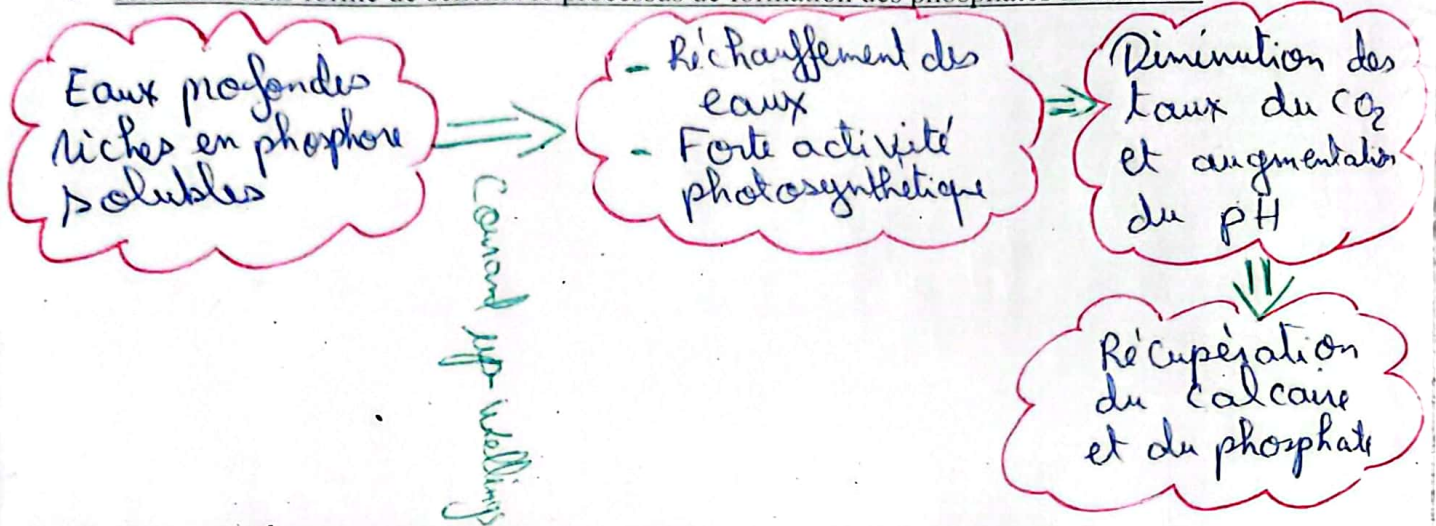 sous forme de processus de formation des phosphates
Eaux profondes
riches en phosphore
solubles
Courant up-wellings
- Réchauffement des
eaux
- Forte activité
photosynthétique
Diminution des
taux du CO2
et augmentation
du pH
Récupération
du calcaire
et du phosphate